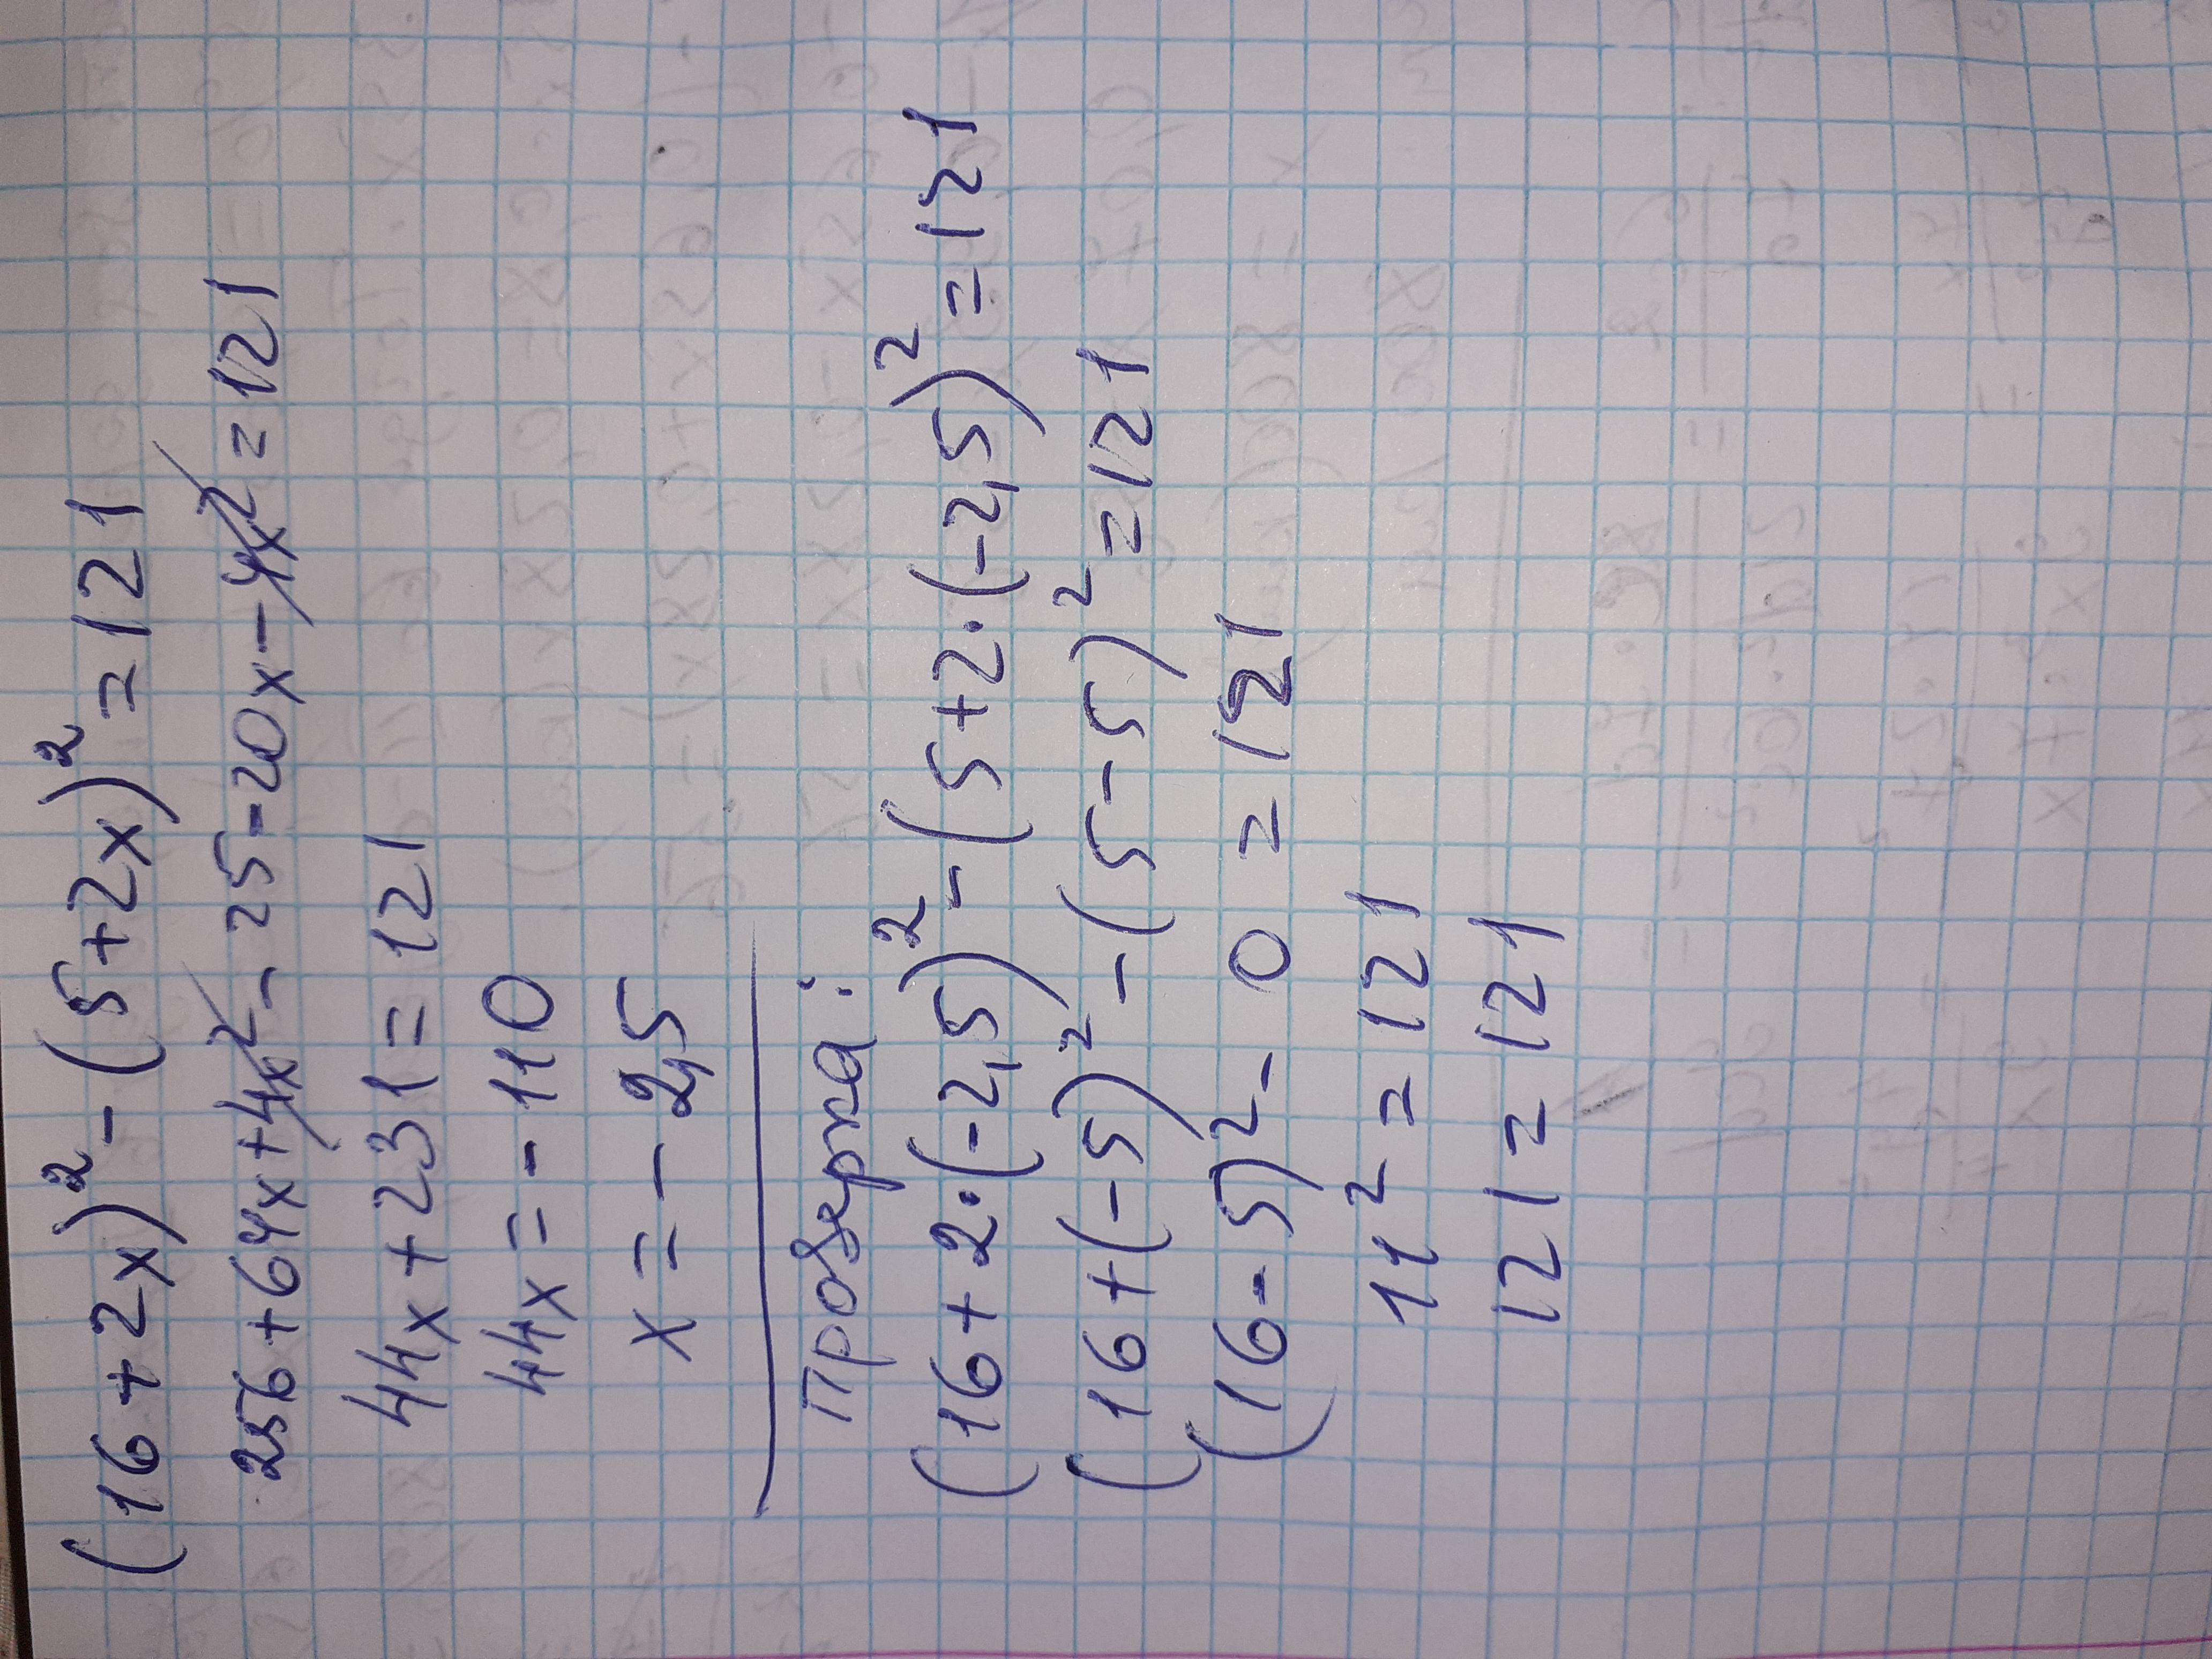 (16+2x)²-(5+2x)²=121
256+64x+4x²-25-20x-4x²=121
44x+231=121
44x=-110
x=-2,5
Проверка:
(16+2·(-2,5)²-(5+2·(-2,5)²=121
(16+(-5)²-(5-5)²=121
(16-5)²-0=121
11²=121
121=121